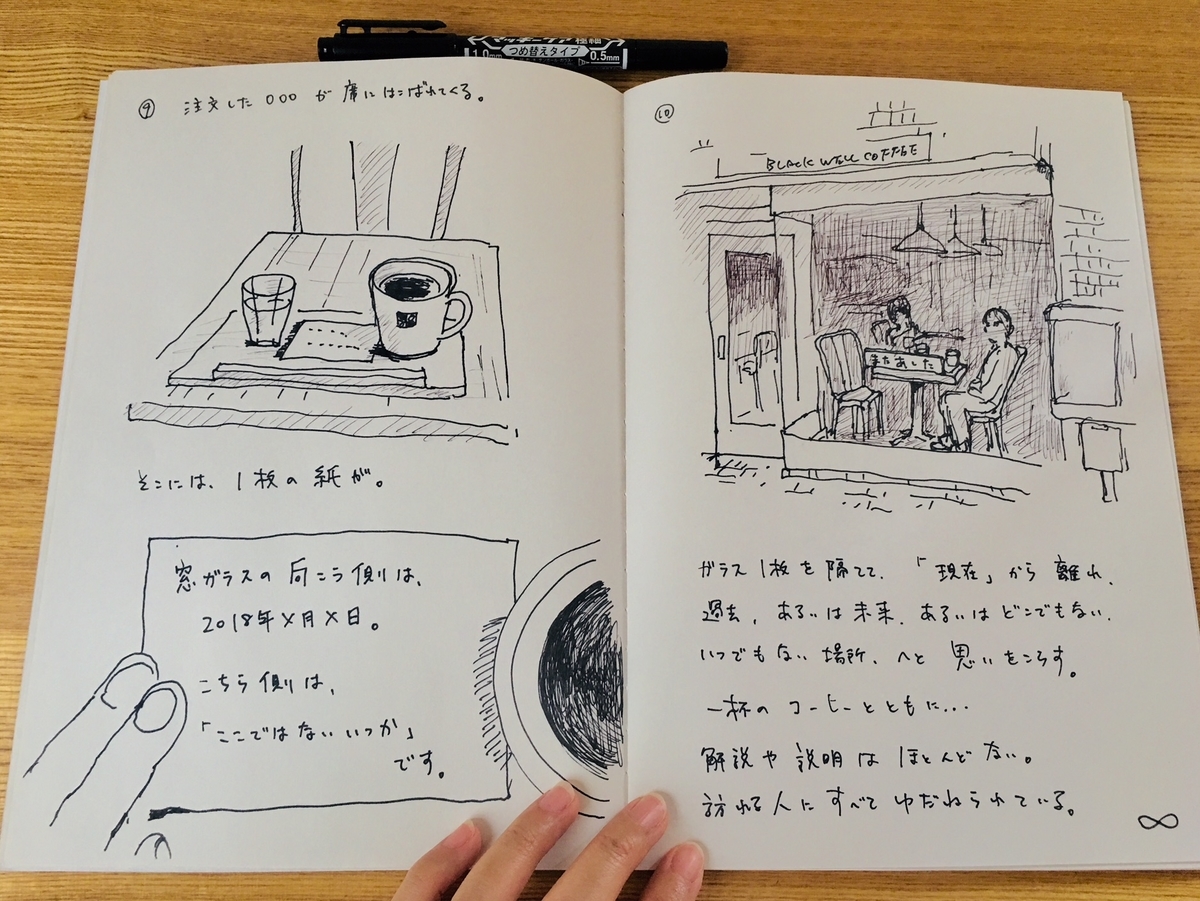 マッキーケア極細
1.0mm
つめ替えタイプ
0.5mm
⑨ 注文した ○○○ が 席に はこばれてくる。
そこには、1枚の 紙が。
窓ガラスの 向こう側は、
2018年×月×日。
こちら側は、
「ここではない いつか」
です。
⑩
BLACK WELL COFFEE
またあした
ガラス1枚を隔てて、「現在」から離れ、
過去、あるいは未来、あるいはどこでもない、
いつでもない場所、へと思いをころす。
一杯の コーヒーとともに...
解説や説明は ほとんどない。
訪れる人に すべて ゆだねられている。
∞